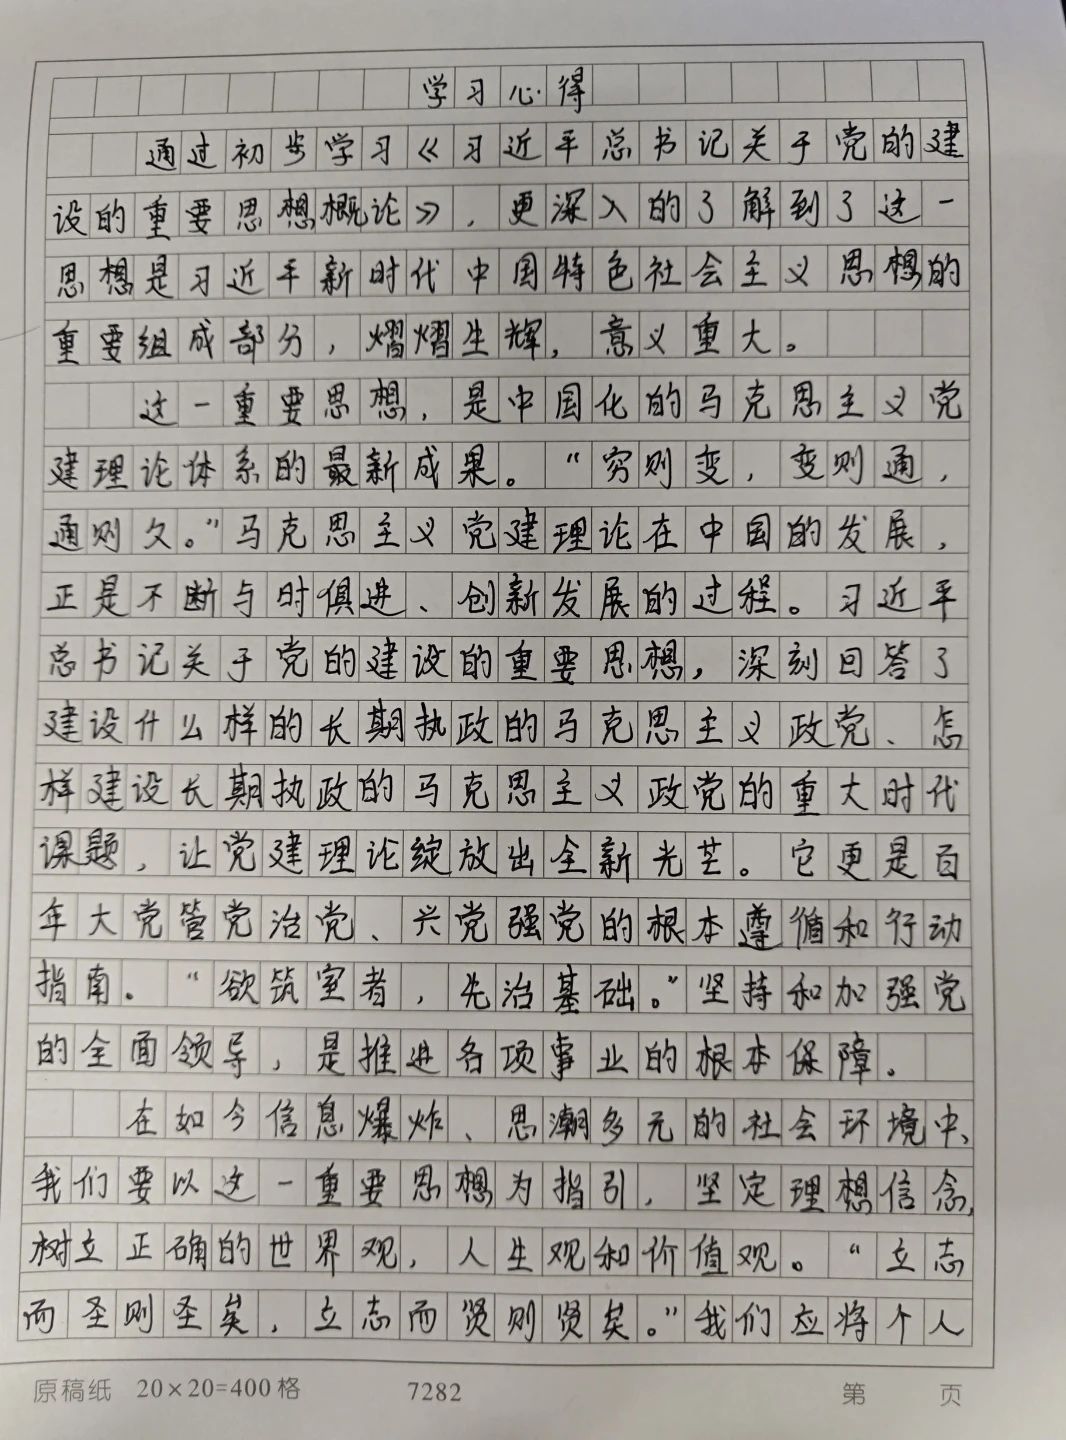 学习心得
通过初步学习《习近平总书记关于党的建
设的重要思想概论》，更深入的了解到了这一
思想是习近平新时代中国特色社会主义思想的
重要组成部分，熠熠生辉，意义重大。
这一重要思想，是中国化的马克思主义党
建理论体系的最新成果。“穷则变，变则通，
通则久。”马克思主义党建理论在中国的发展，
正是不断与时俱进、创新发展的过程。习近平
总书记关于党的建设的重要思想，深刻回答了
建设什么样的长期执政的马克思主义政党、怎
样建设长期执政的马克思主义政党的重大时代
课题，让党建理论绽放出全新光芒。它更是百
年大党管党治党、兴党强党的根本遵循和行动
指南。“欲筑室者，先治基础。”坚持和加强党
的全面领导，是推进各项事业的根本保障。
在如今信息爆炸、思潮多元的社会环境中、
我们要以这一重要思想为指引，坚定理想信念，
树立正确的世界观，人生观和价值观。“立志
而圣则圣矣，立志而贤则贤矣。”我们应将个人
原稿纸 20×20=400格 7282 第 页